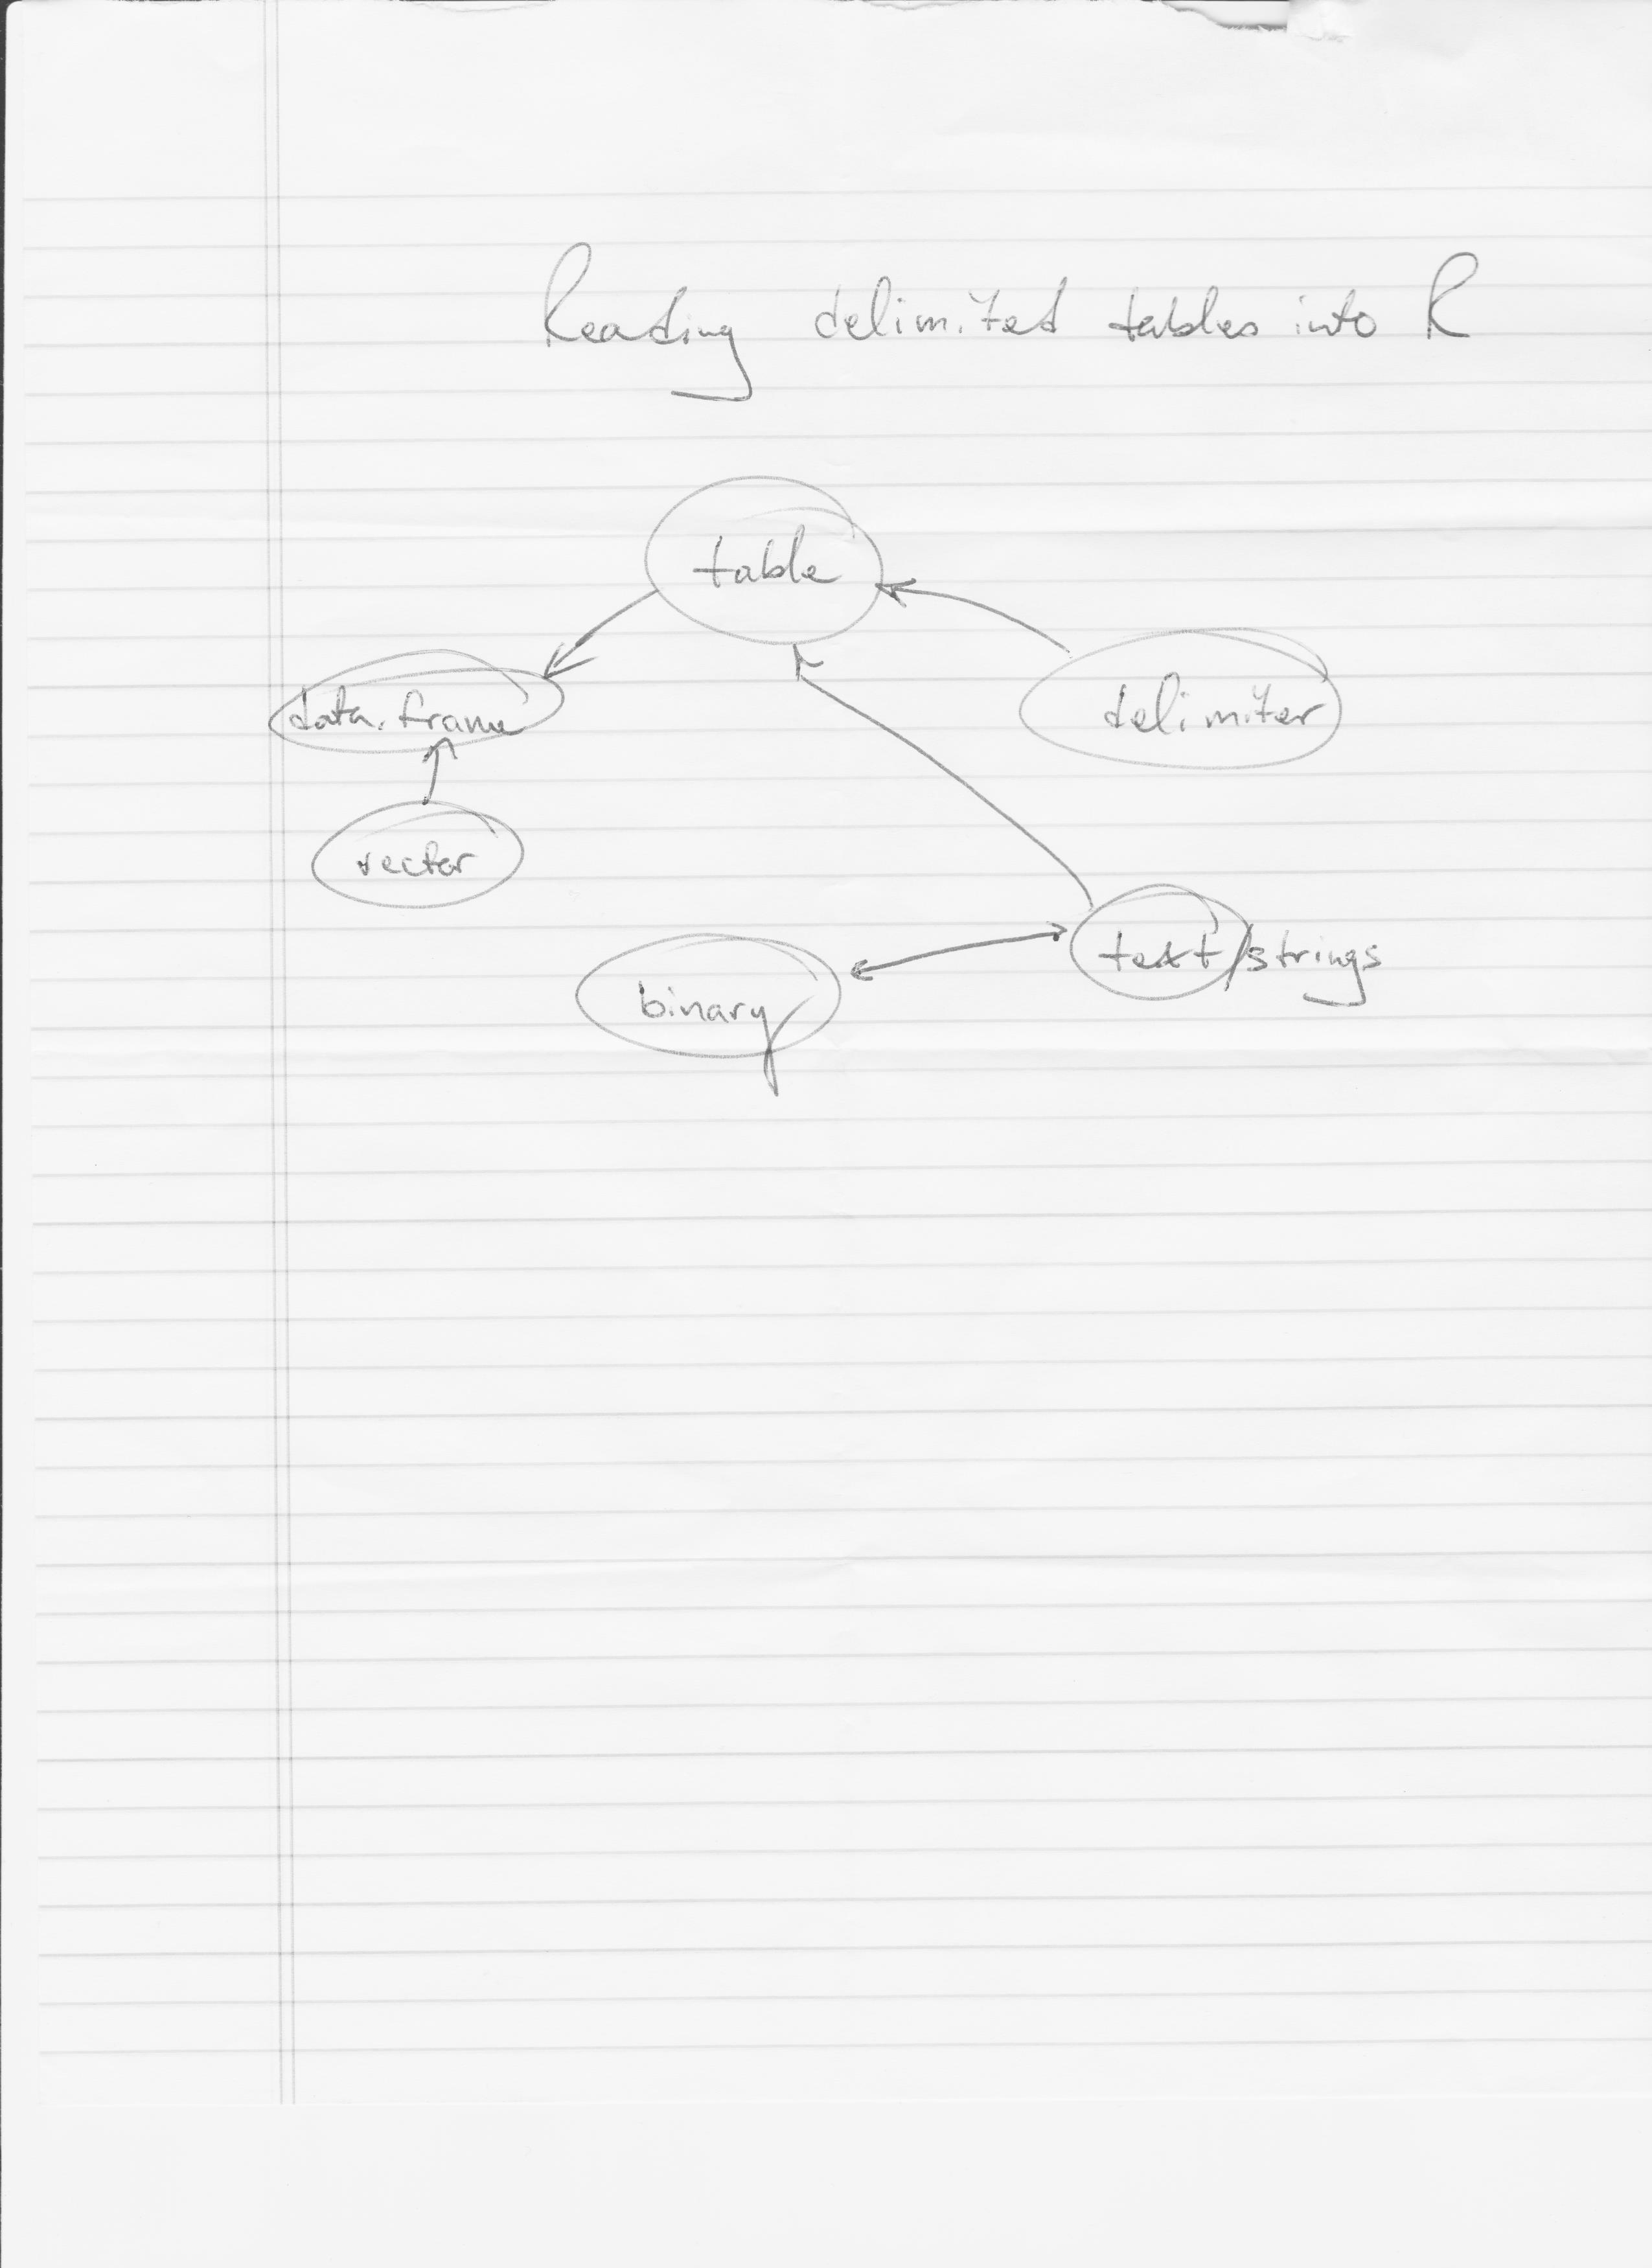 Reading delimited tables into R
table
data.frame
delimiter
vector
text/strings
binary